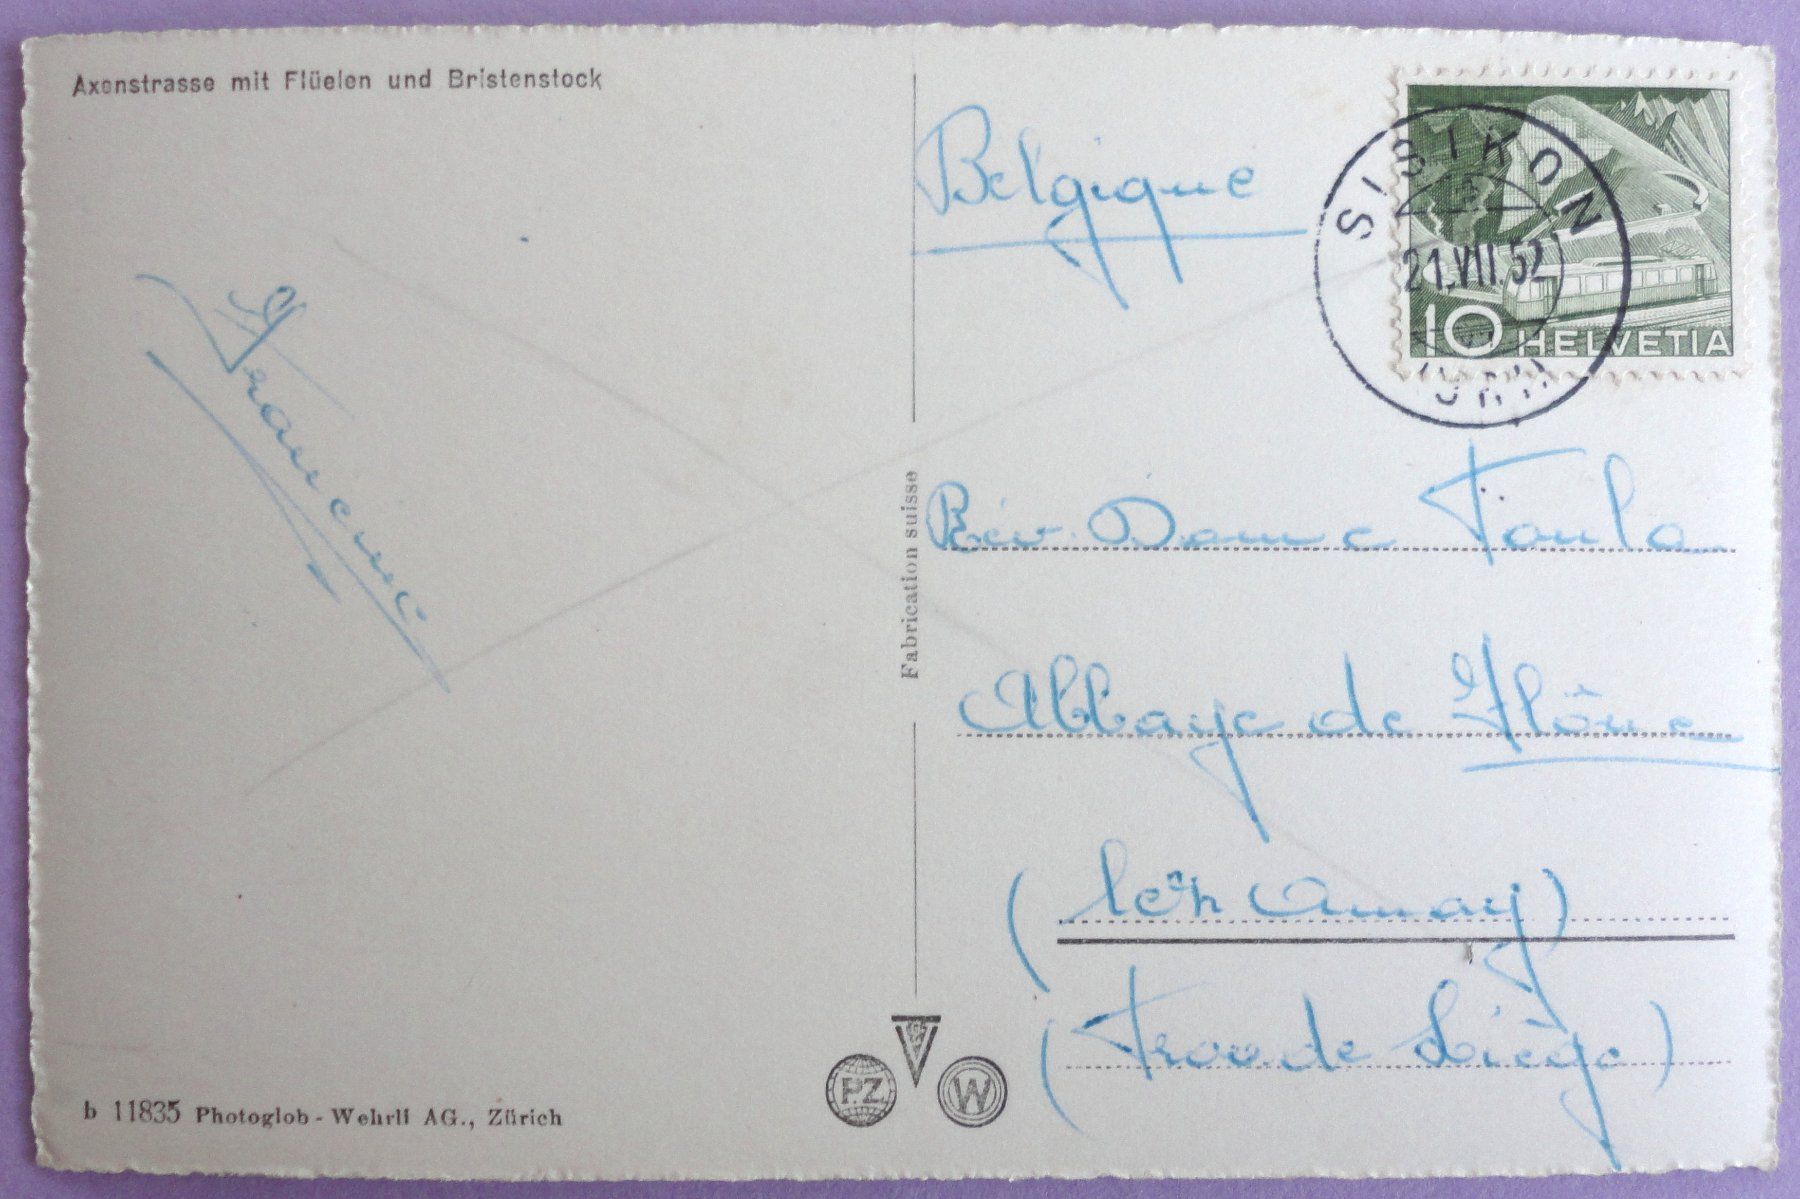 Axenstrasse mit Flüelen und Bristenstock
Francine
b 11835 Photoglob - Wehrli AG., Zürich
Fabrication suisse
P.Z
W
SISIKON
21.VII.52
(URI)
10 HELVETIA
Belgique
Rév. Dame Paula
Abbaye de Flône
(lez Amay)
(Prov. de Liège)